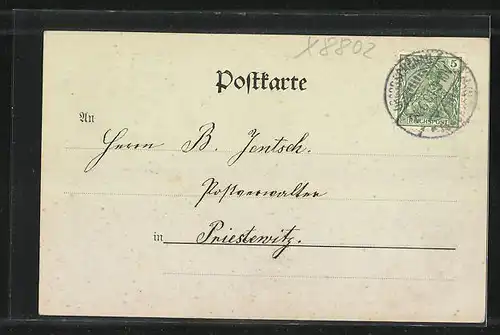 X8802
Postkarte
5
REICHSPOST
An
Herrn B. Jentsch.
Postverwalter
in Priestewitz.